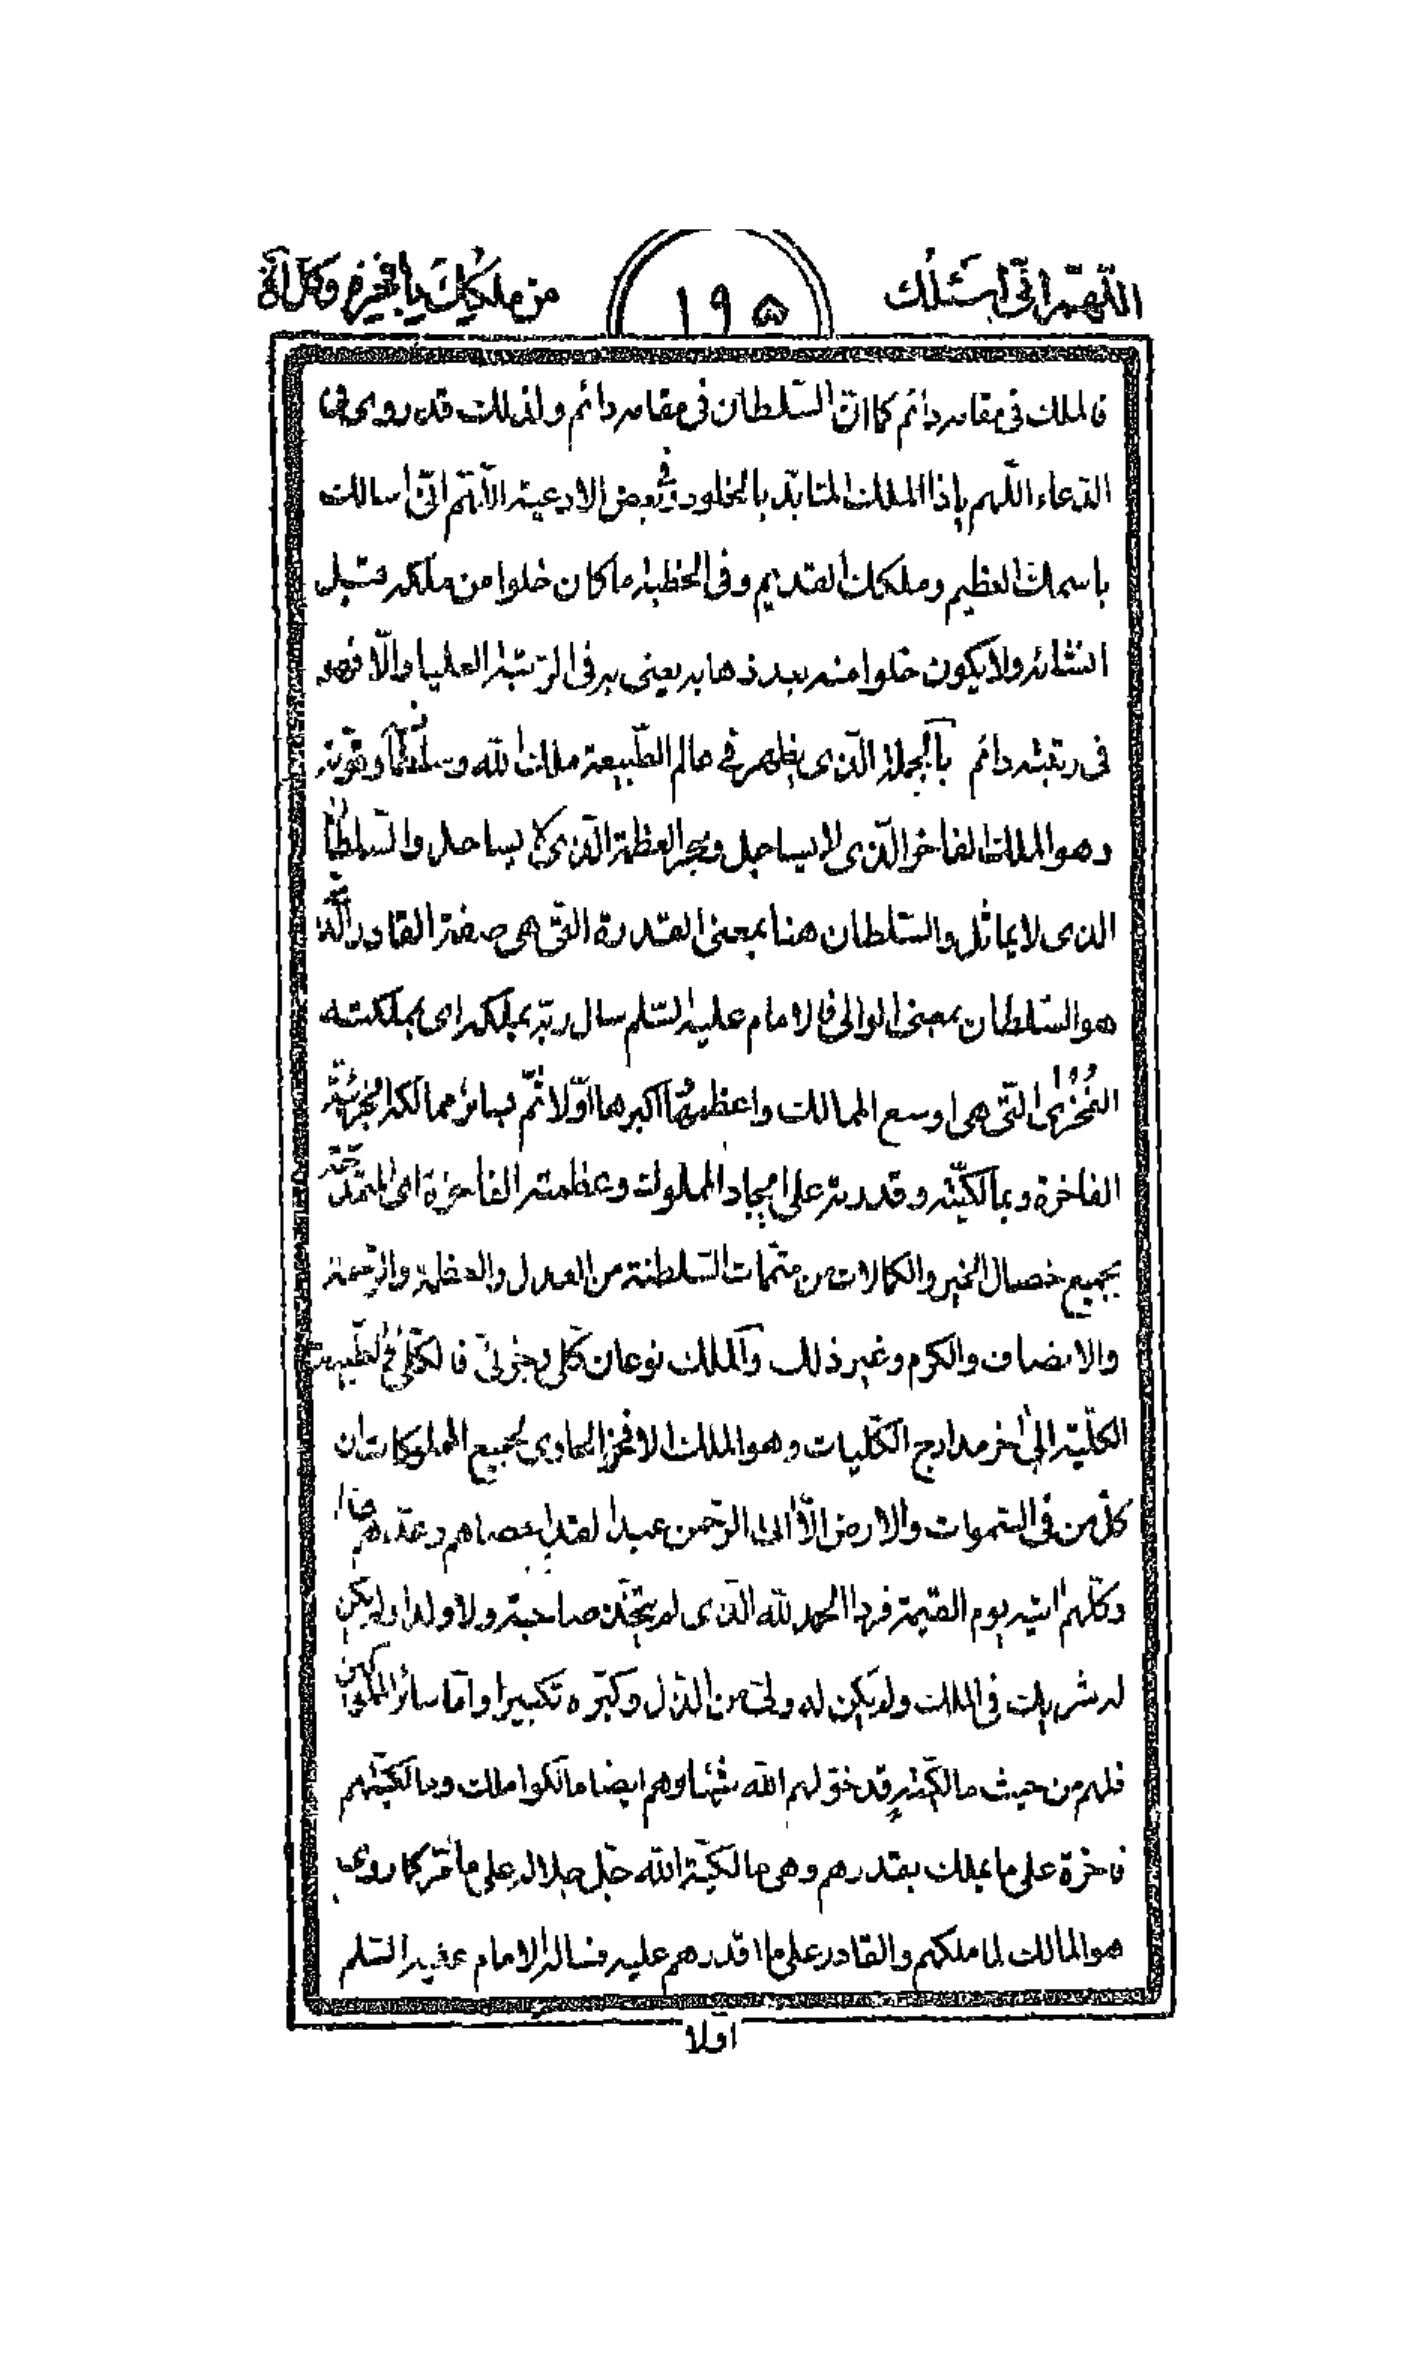 اللّهمّ انّى اسئلك
١٩٥
من ملكك بافخره وكلّ
فالملك فى مقامه دائم كما انّ السّلطان فى مقامه دائم ولذلك قد روى فى
الدّعاء اللّهم يا ذا الملك المتابّد بالخلود وفى بعض الادعية اللّهمّ انّى اسالك
باسمك العظيم وملكك القديم وفى الخطبة ما كان خلوا من ملكه قبل
انشائه ولا يكون خلوا منه بعد ذهابه يعنى به فى الرّتبة العليا والّا فهو
فى رتبته دائم بالجملة الّذى يظهر فى عالم الطّبيعة ملك اللّه وسلطانه وقوّته
وهو الملك الفاخر الّذى لا يساجل وبحر العظمة الّذى لا يساحل والسّلطان
الذى لا يماثل والسّلطان هنا بمعنى القدرة الّتى هى صفة القادر
هو السّلطان بمعنى الوالى فالامام عليه السّلم سال ربّه بملكه اى بمملكته
الفخرى الّتى هى اوسع الممالك واعظمها اكبرها اوّلا ثمّ بسائر ممالكه الجزئيّة
الفاخرة وبمالكيّته وقدرته على ايجاد المملوك وعظمته الفاخرة اى المتمدّحة
بجميع خصال الخير والكمالات من متمّمات السّلطنة من العدل والعظمة والرّحمة
والانصاف والكرم وغير ذلك والملك نوعان كلّى وجزئى فالكلّى الطّبيعة
الكلّية الى اخر مدارج الكلّيات وهو الملك الافخر الحاوى لجميع المملوكات ان
كلّ من فى السّموات والارض الّا اتى الرّحمن عبدا لقد احصاهم وعدّهم عدّا
وكلّهم اتيه يوم القيمة فردا الحمد للّه الّذى لم يتّخذ صاحبة ولا ولدا ولم يكن
له شريك فى الملك ولم يكن له ولىّ من الذّل وكبّره تكبيرا وامّا سائر المملوكين
فلهم من حيث مالكيّته قد خوّلهم اللّه شيئا وهم ايضا مالكوا ملك وبمالكيّتهم
فاخرة على ما يملك بقدرهم وهى مالكيّة اللّه جلّ جلاله على ما مرّ كما روى
هو المالك لما ملكهم والقادر على ما اقدرهم عليه فساله الامام عليه السّلم
اوّلا